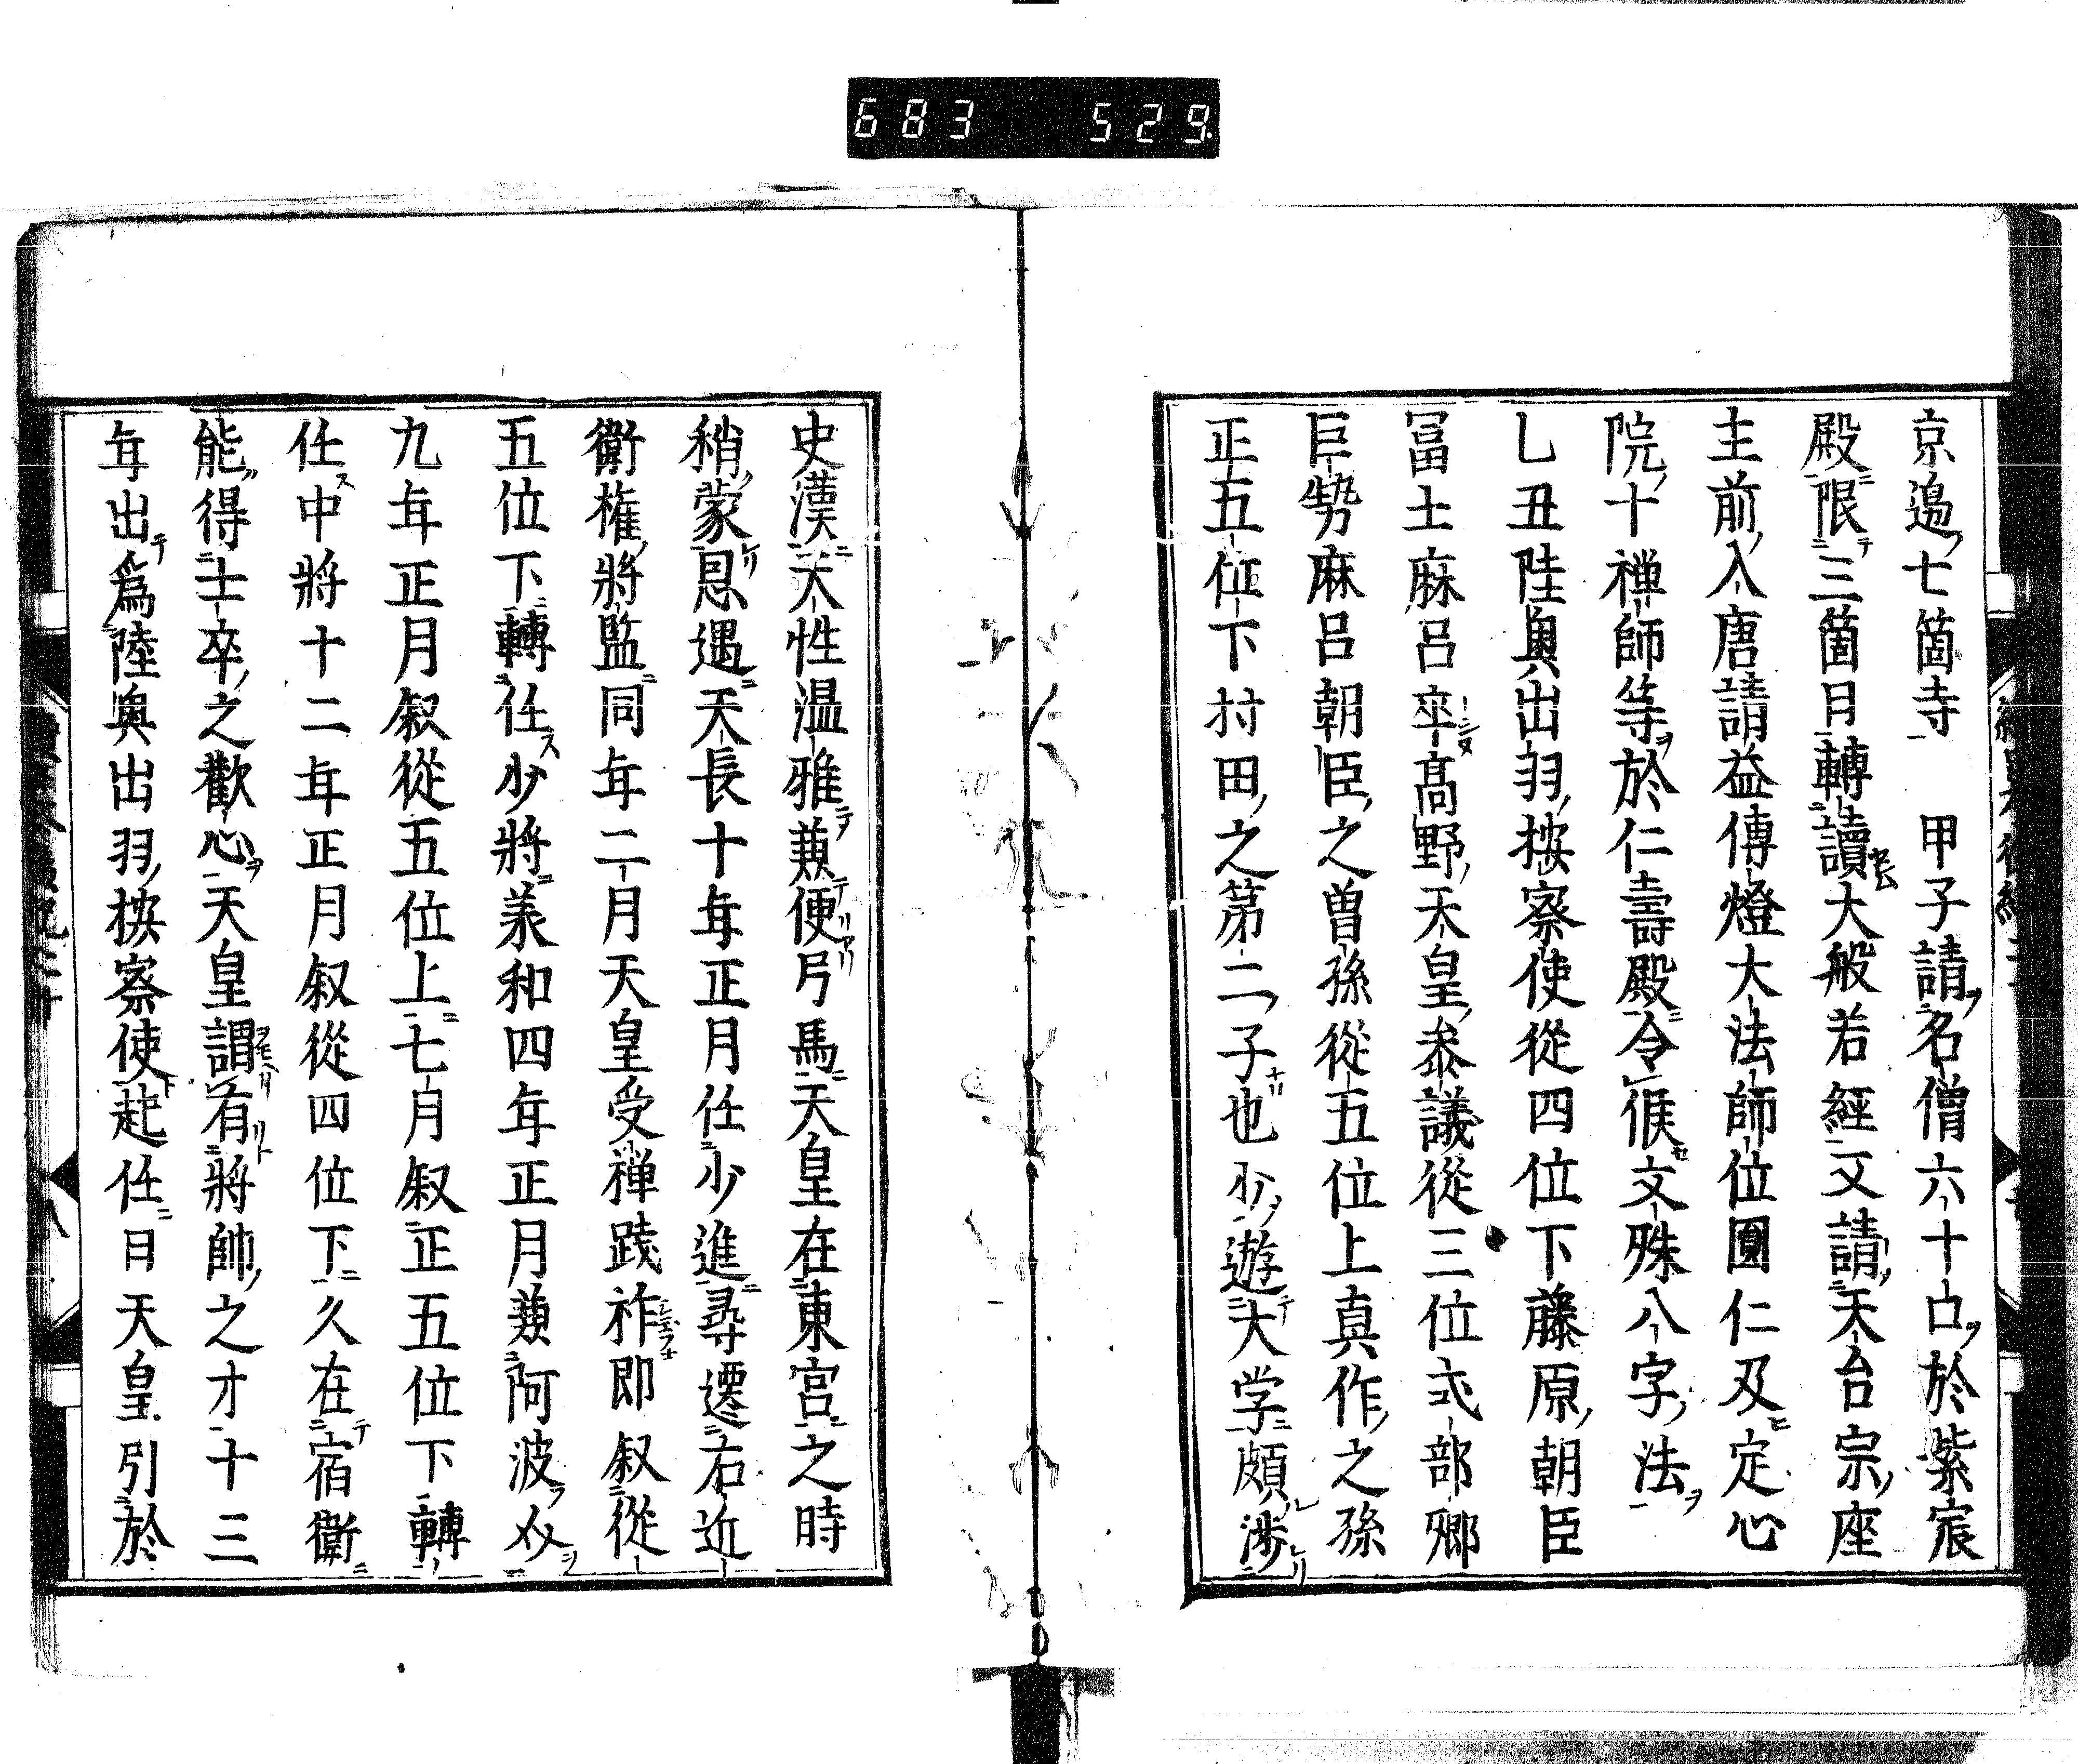 683 529
京邊七箇寺 甲子請名僧六十口於紫宸
殿限三箇月轉讀大般若經又請天台宗座
主前入唐請益傳燈大法師位圓仁及定心
院十禪師等於仁壽殿令修文殊八字法
乙丑陸奥出羽按察使從四位下藤原朝臣
冨士麻呂卒高野天皇叅議從三位式部卿
巨勢麻呂朝臣之曽孫從五位上真作之孫
正五位下村田之第二子也少遊大学頗渉
史漢天性温雅兼便弓馬天皇在東宮之時
稍蒙恩遇天長十年正月任少進尋遷右近
衛権將監同年二月天皇受禅踐祚即叙從
五位下轉任少將羕和四年正月兼阿波介
九年正月叙從五位上七月叙正五位下轉
任中將十二年正月叙從四位下久在宿衛
能得士卒之歡心天皇謂有將帥之才十三
年出爲陸奥出羽按察使赴任日天皇引於